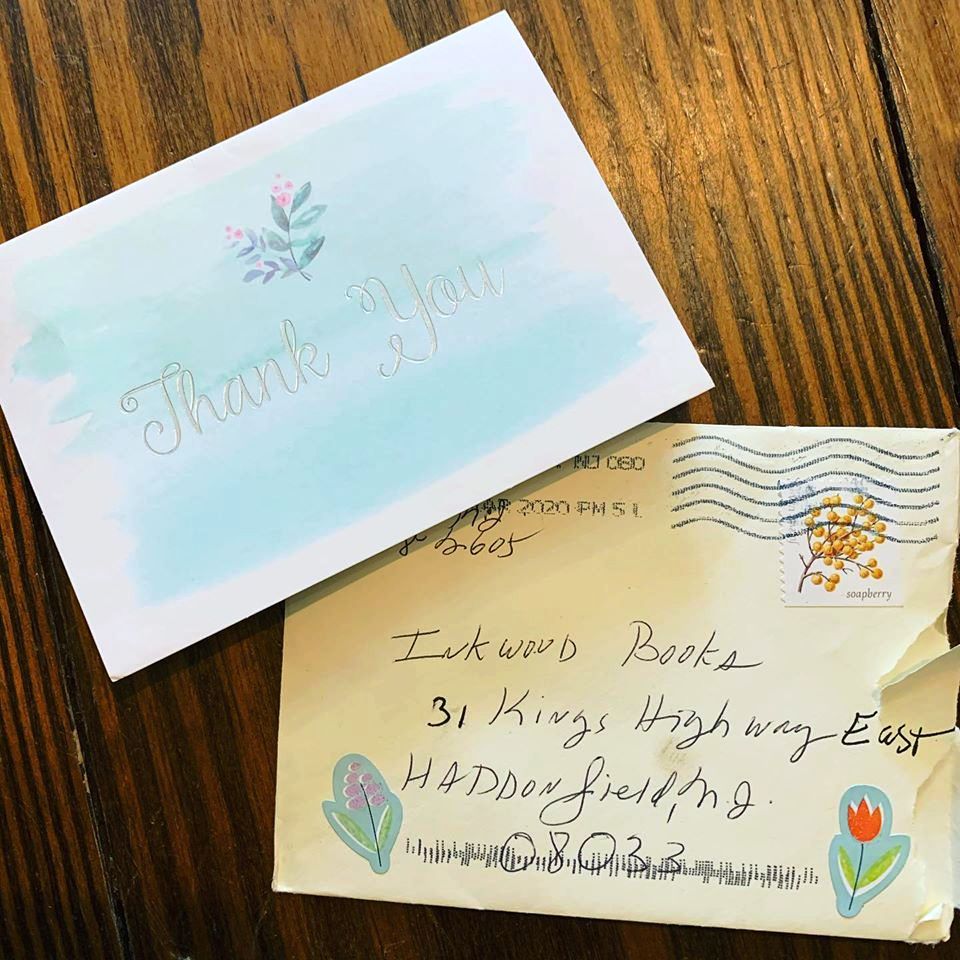 Thank You
NJ 080
2020 PM 5 L
2605
soapberry
Inkwood Books
31 Kings Highway East
HADDONfield, N.J.
08033